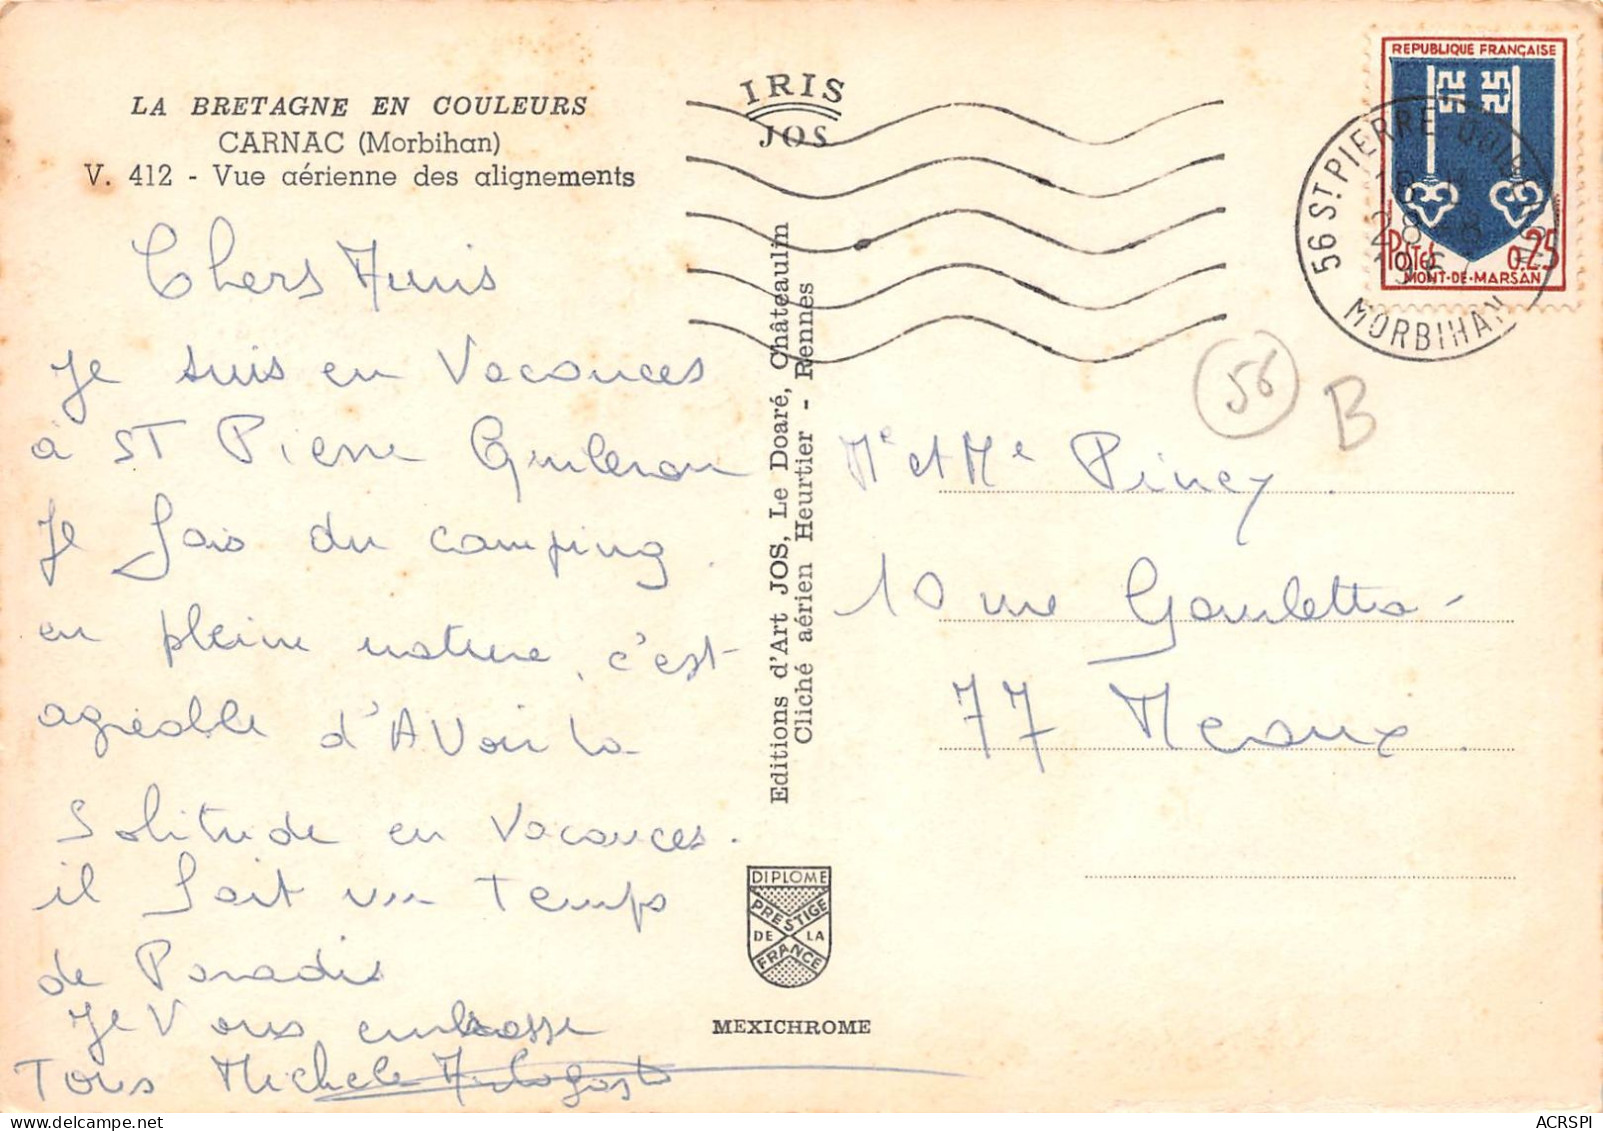 LA BRETAGNE EN COULEURS
CARNAC (Morbihan)
V. 412 - Vue aérienne des alignements
IRIS
JOS
REPUBLIQUE FRANÇAISE
POSTES 0,25
MONT-DE-MARSAN
56 ST PIERRE-QUIBERON
28-8
MORBIHAN
Chers Amis
Je suis en Vacances
à ST Pierre Quiberon
Je fais du camping
en pleine nature, c'est
agréable d'AVoir la
Solitude en Vacances.
il fait un Temps
de Paradis
Je Vous embrasse
Tous Michele
Editions d'Art JOS, Le Doaré, Châteaulin
Cliché aérien Heurtier - Rennes
56
B
Mr et Me Piney
10 rue Gambetta -
77 Meaux.
DIPLOME
PRESTIGE
DE LA
FRANCE
MEXICHROME
ACRSPI